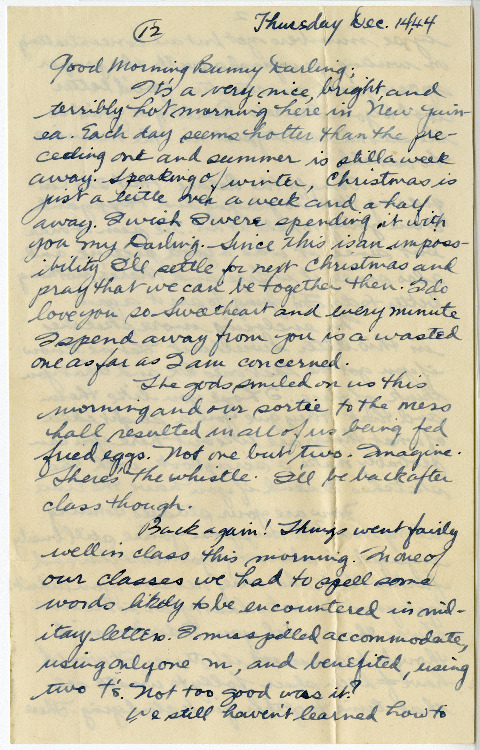 12
Thursday Dec. 14,44
Good Morning Bunny Darling;
It's a very nice, bright and
terribly hot morning here in New Guin-
ea. Each day seems hotter than the pre-
ceeding one and summer is still a week
away. Speaking of winter, Christmas is
just a little over a week and a half
away. I wish I were spending it with
you my Darling. Since this is an imposs-
ibility I'll settle for next Christmas and
pray that we can be together then. I do
love you so Sweetheart and every minute
I spend away from you is a wasted
one as far as I am concerned.
The gods smiled on us this
morning and our sortie to the mess
hall resulted in all of us being fed
fried eggs. Not one but two. Imagine.
There's the whistle. I'll be back after
class though.
Back again! Things went fairly
well in class this morning. In one of
our classes we had to spell some
words likely to be encountered in mil-
itary letters. I misspelled accommodate,
using only one m, and benefited, using
two t's. Not too good was it?
We still haven't learned how to